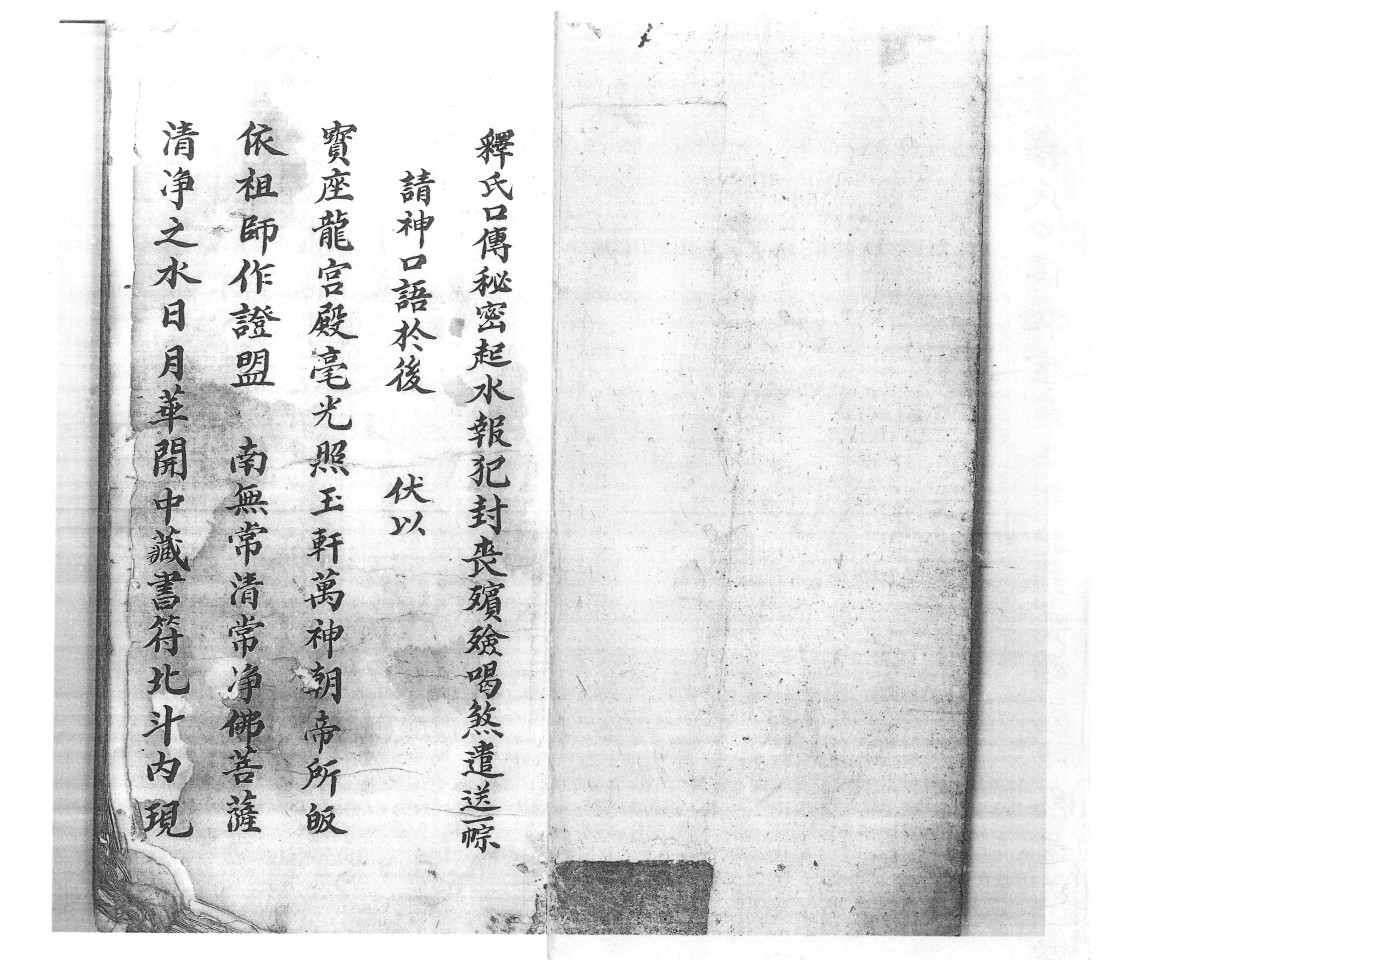 釋氏口傳秘密起水報犯封喪殯殮喝煞遣送一㡓
請神口語於後　伏以
寳座龍宫殿毫光照玉軒萬神朝帝所皈
依祖師作證盟　南無常清常净佛菩薩
清净之水日月華開中藏書符北斗内現